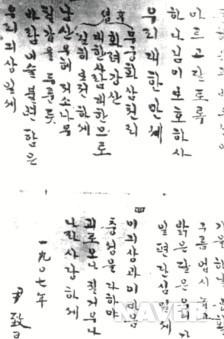 마르고 달토록
하나님이 보호하사
우리 대한 만세
후렴
무궁화 삼천리
화려강산
대한사람 대한으로
길이 보전하세
남산 우헤 저 소나무
철갑을 두른 듯
바람이슬 불변함은
우리 긔상일세
구름 업시
밝은 달은 우리
일편단심일세
四
이 긔상과 이 마음
충성을 다하야
괴로오나 질거우나
나라사랑하세
一九〇七年
尹致
NAVER